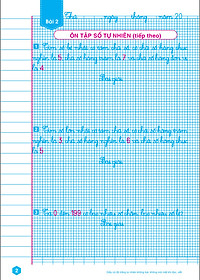 Thứ ngày tháng năm 20
Bài 2
ÔN TẬP SỐ TỰ NHIÊN (tiếp theo)
1 Tìm số bé nhất có tám chữ số, có chữ số hàng chục
nghìn là 5, chữ số hàng trăm là 7 và chữ số hàng đơn vị
là 4
Bài giải
2 Tìm số lớn nhất có tám chữ số, có chữ số hàng trăm
nghìn là 3, chữ số hàng nghìn là 6 và chữ số hàng chục
là 5
Bài giải
3 Từ 0 đến 199 có bao nhiêu số chẵn, bao nhiêu số lẻ?
Bài giải
2